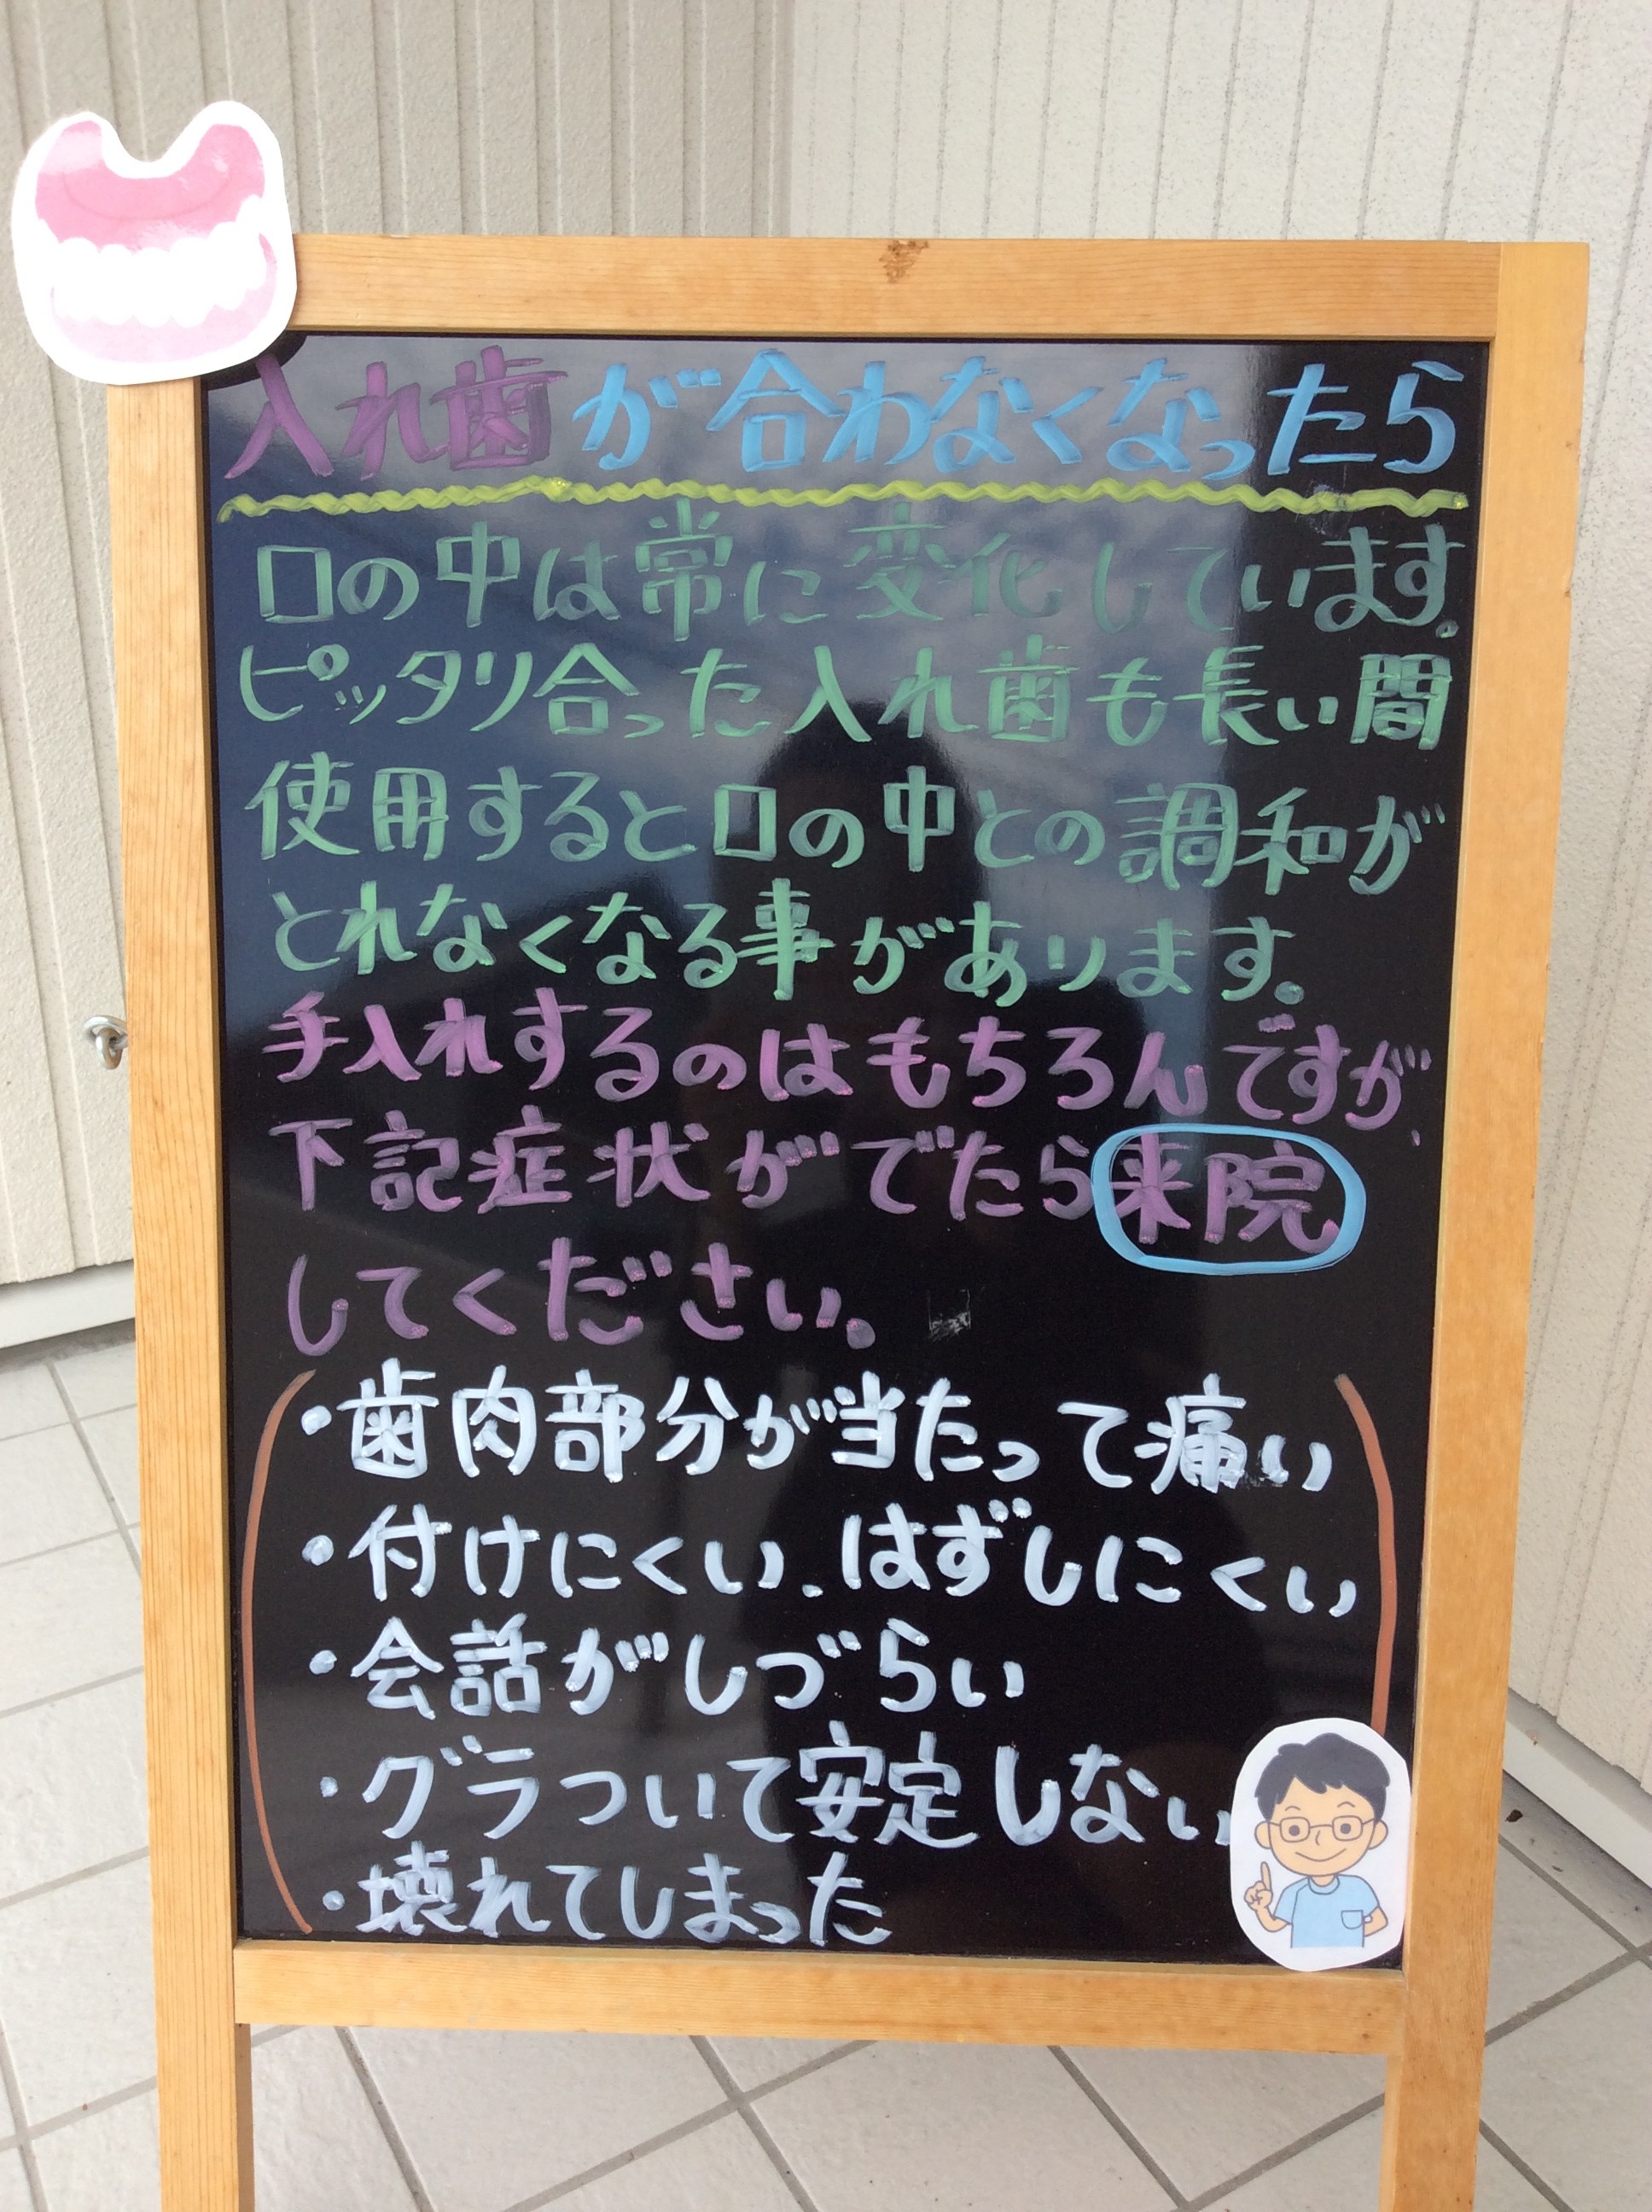 入れ歯が合わなくなったら
口の中は常に変化しています。
ピッタリ合った入れ歯も長い間
使用すると口の中との調和が
とれなくなる事があります。
手入れするのはもちろんですが、
下記症状がでたら来院
してください。
・歯肉部分が当たって痛い
・付けにくい、はずしにくい
・会話がしづらい
・グラついて安定しない
・壊れてしまった